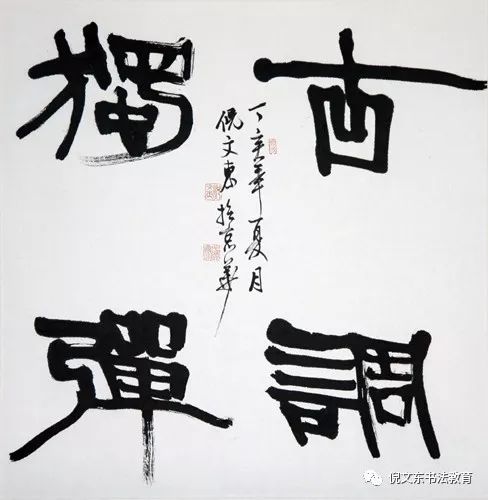 古調
獨彈
丁亥年夏月
倪文東於京華
倪文东书法教育